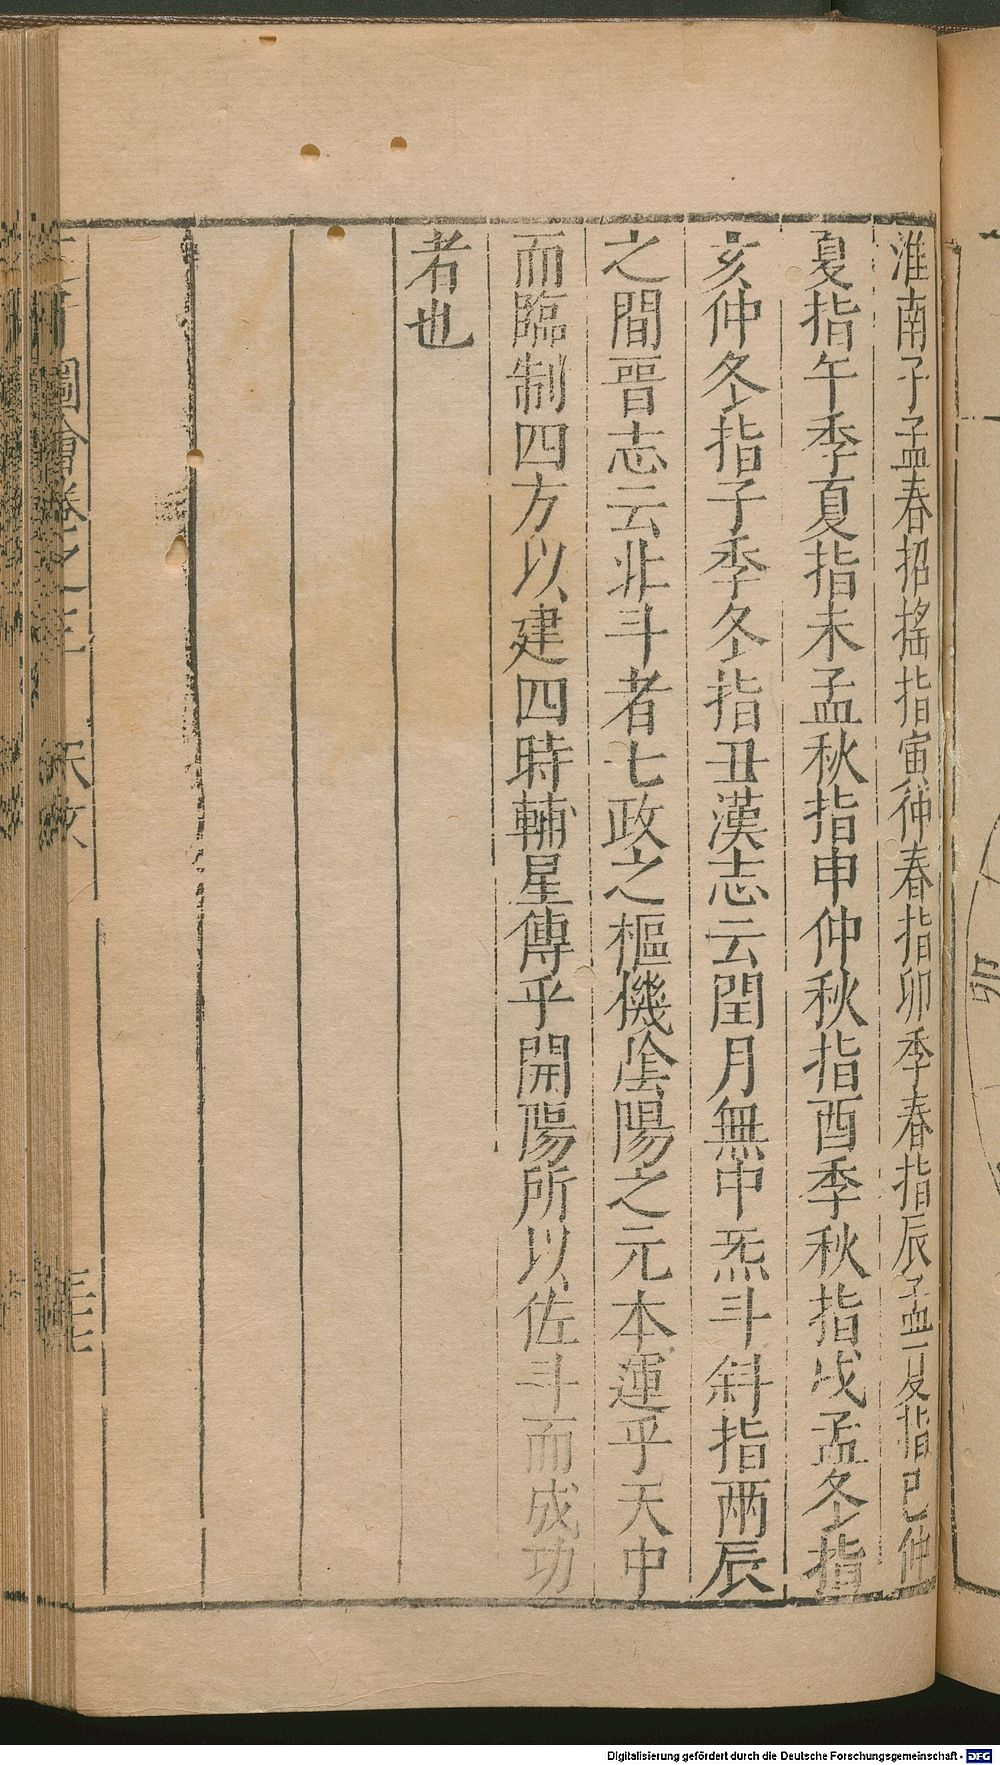 淮南子孟春招搖指寅仲春指卯季春指辰孟夏指巳仲
夏指午季夏指未孟秋指申仲秋指酉季秋指戌孟冬指
亥仲冬指子季冬指丑漢志云閏月無中炁斗斜指兩辰
之間晉志云北斗者七政之樞機陰陽之元本運乎天中
而臨制四方以建四時輔星傅乎開陽所以佐斗而成功
者也
圖會卷之三
卯
Digitalisierung gefördert durch die Deutsche Forschungsgemeinschaft - DFG